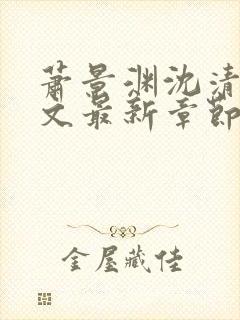 萧景渊沈清
文最新章節
金屋藏佳